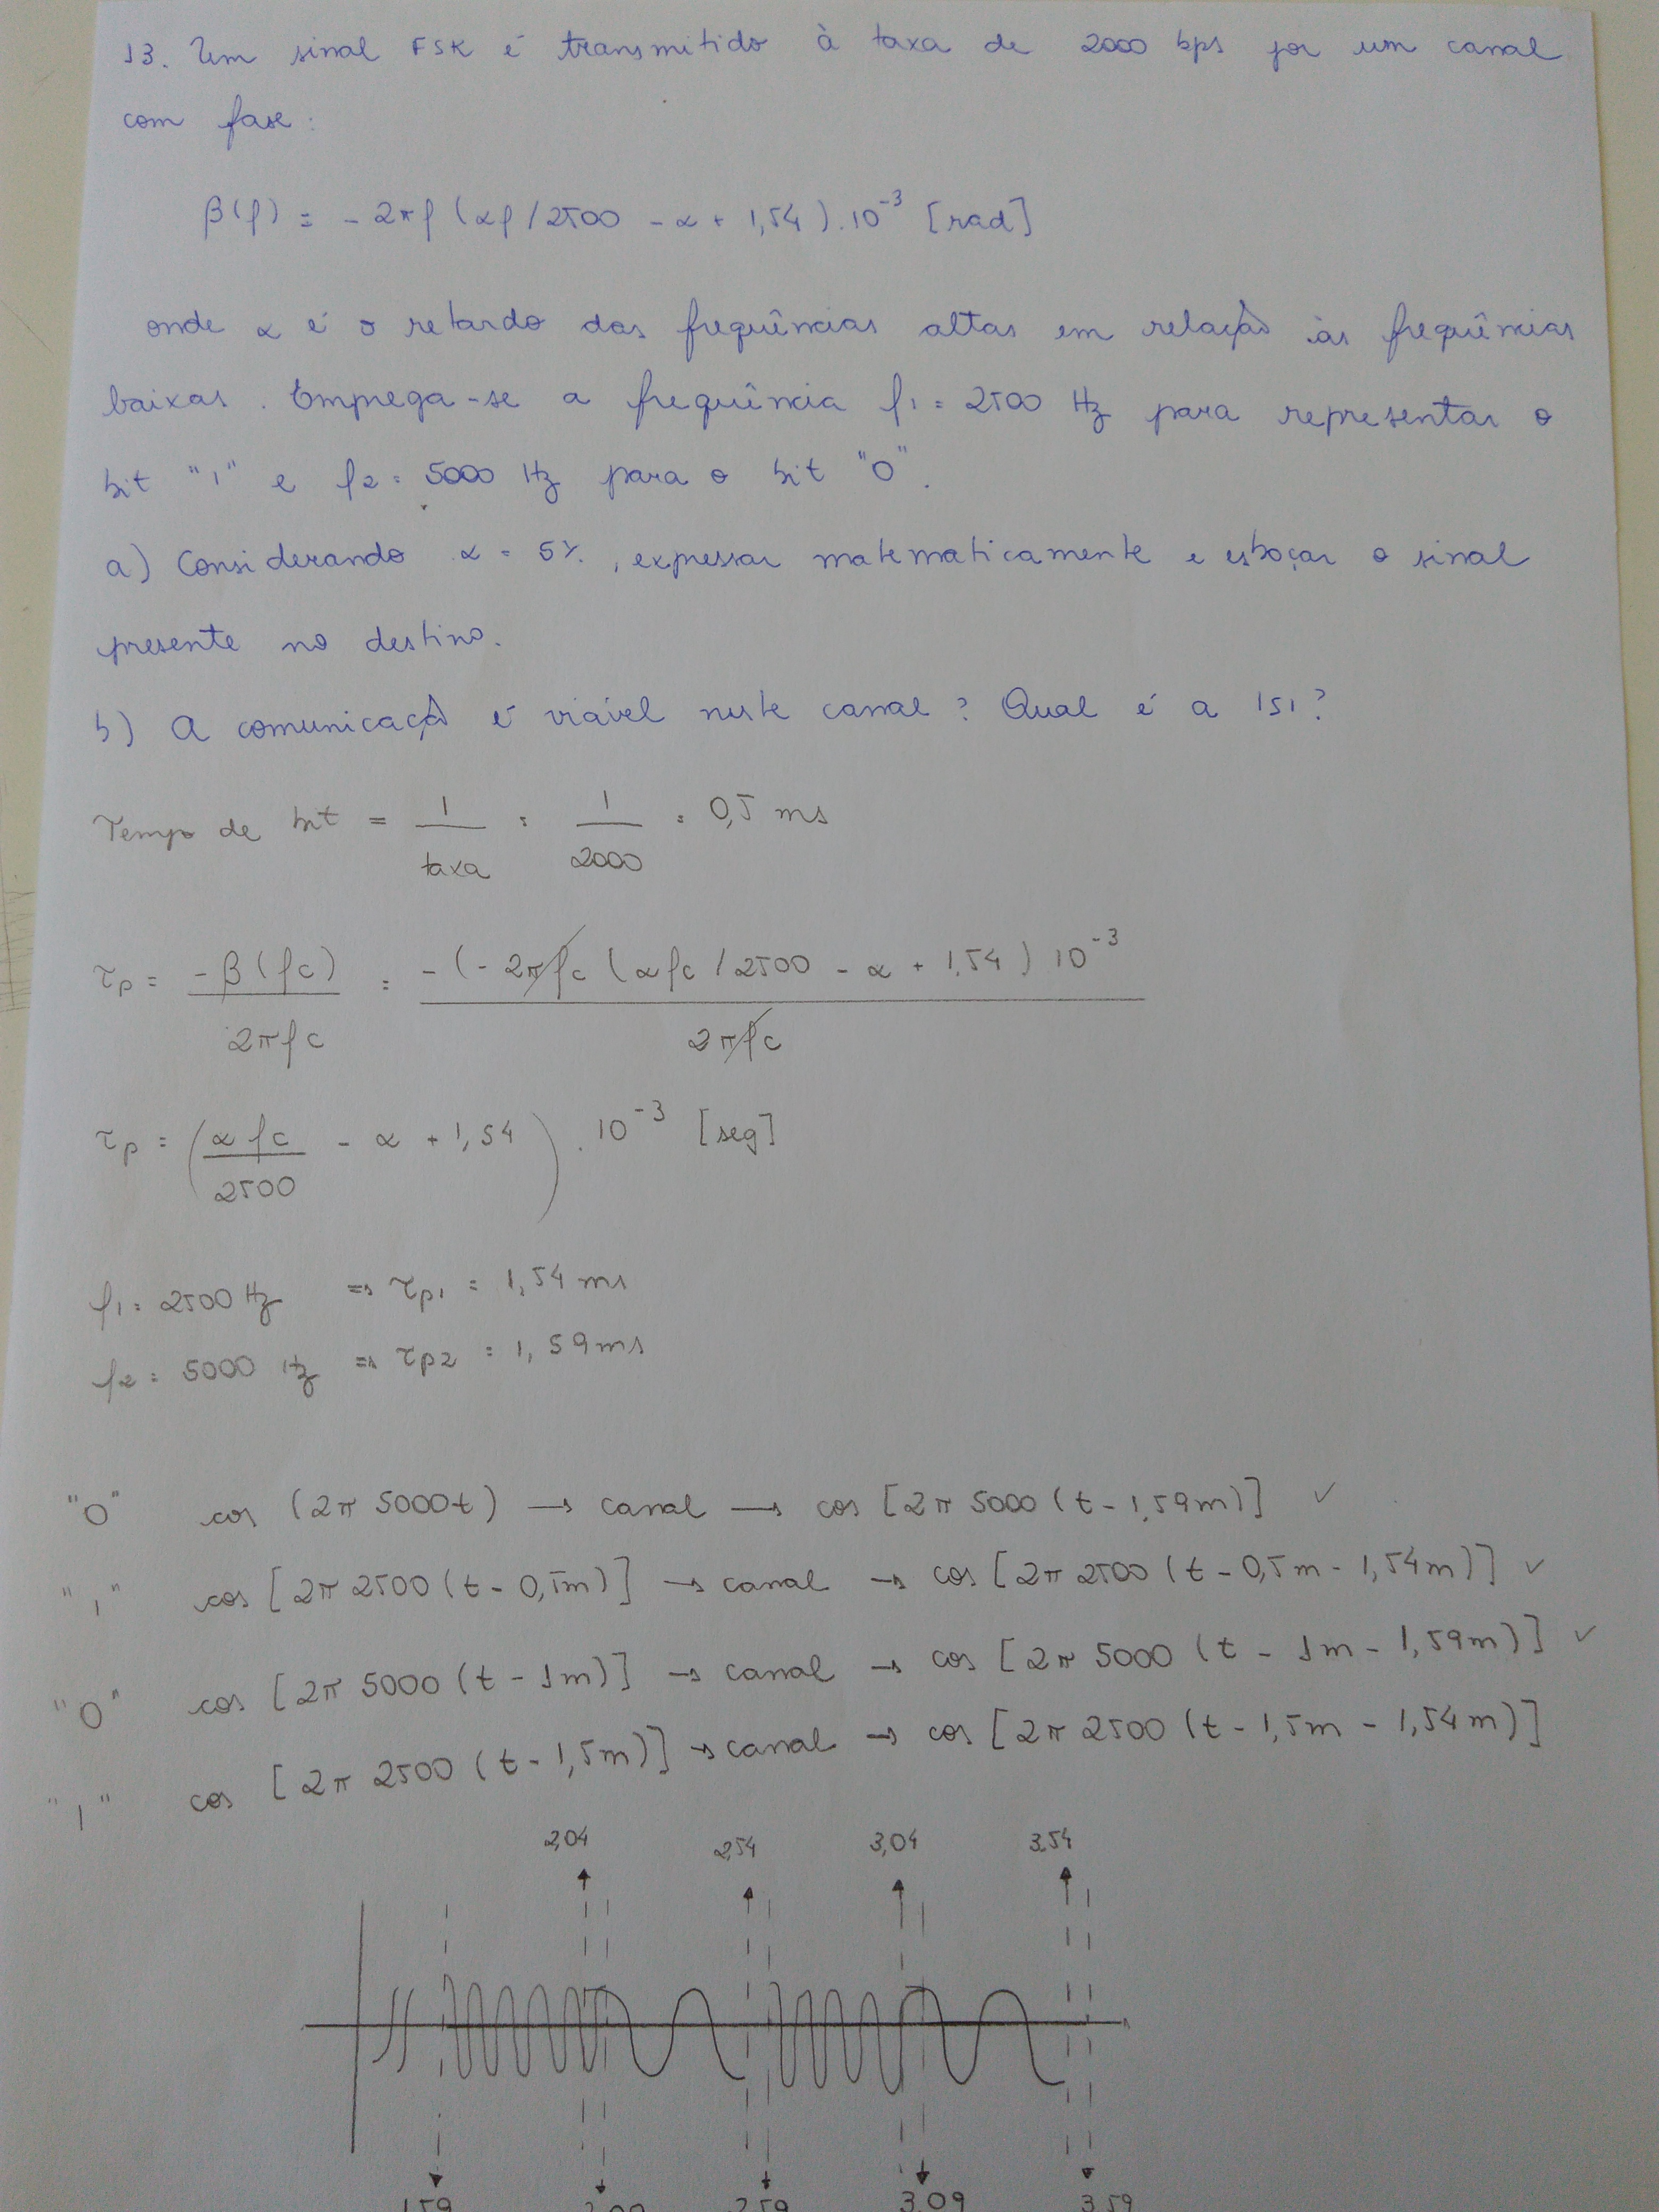 13. Um sinal FSK é transmitido à taxa de 2000 bps por um canal
com fase:
β(f) = - 2πf (αf/2500 - α + 1,54).10⁻³ [rad]
onde α é o retardo das frequências altas em relação às frequências
baixas. Emprega-se a frequência f1 = 2500 Hz para representar o
bit "1" e f2 = 5000 Hz para o bit "0".
a) Considerando α = 5%, expressar matematicamente e esboçar o sinal
presente no destino.
b) A comunicação é viável neste canal? Qual é a ISI?
Tempo de bit = 1/taxa = 1/2000 = 0,5 ms
τp = -β(fc)/2πfc = -(-2πfc (αfc/2500 - α + 1,54) 10⁻³/2πfc
τp = (αfc/2500 - α + 1,54).10⁻³ [seg]
f1 = 2500 Hz ⇒ τp1 = 1,54 ms
f2 = 5000 Hz ⇒ τp2 = 1,59 ms
"0" cos (2π 5000t) → canal → cos [2π 5000 (t - 1,59m)] ✓
"1" cos [2π 2500 (t - 0,5m)] → canal → cos [2π 2500 (t - 0,5m - 1,54m)] ✓
"0" cos [2π 5000 (t - 1m)] → canal → cos [2π 5000 (t - 1m - 1,59m)] ✓
"1" cos [2π 2500 (t - 1,5m)] → canal → cos [2π 2500 (t - 1,5m - 1,54m)]
2,04 2,54 3,04 3,54
1,59 2,09 2,59 3,09 3,59